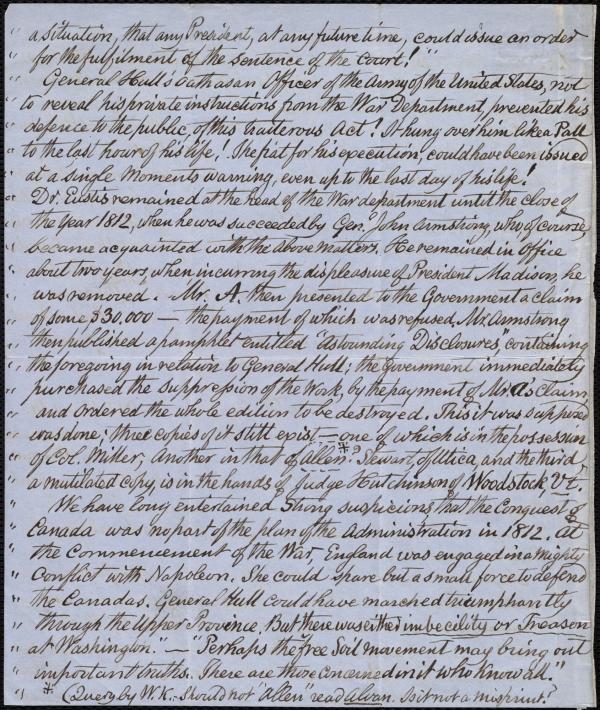 " a situation, that any President, at any future time, could issue an order
" for the fulfilment of the sentence of the Court!"
" General Hull's oath as an Officer of the Army of the United States, not
" to reveal his private instructions from the War Department, prevented his
" defence to the public, of this traiterous Act! It hung over him like a Pall
" to the last hour of his life! The fiat for his execution, could have been issued
" at a single Moments warning, even up to the last day of his life!
" Dr. Eustis remained at the head of the War department until the close of
" the Year 1812, when he was succeeded by Genl. John Armstrong, who, of course,
" became acquainted with the above matters. He remained in Office
" about two years, when incurring the displeasure of President Madison, he
" was removed. Mr. A. then presented to the Government a claim
" of some $30,000 — the payment of which was refused. Mr. Armstrong
" then published a pamphlet entitled "Astounding Disclosures," containing
" the foregoing in relation to General Hull; the Government immediately
" purchased the suppression of the Work, by the payment of Mr. A's Claim
" and ordered the whole edition to be destroyed. This it was supposed
" was done; three copies of it still exist — one of which is in the possession
" of Col. Miller, another in that of Allen*? Stewart, of Utica, and the third
" a mutilated copy, is in the hands of Judge Hutchinson of Woodstock, Vt.
" We have long entertained strong suspicions that the Conquest of
" Canada was no part of the plan of the Administration in 1812. At
" the Commencement of the War, England was engaged in a mighty
" conflict with Napoleon. She could spare but a small force to defend
" the Canadas. General Hull could have marched triumphantly
" through the Upper Province. But there was either imbecility or Treason
" at Washington." — "Perhaps the free Soil movement may bring out
" important truths. There are those concerned in it who know all."
* (Query by W.K. - Should not "Allen" read Alvan. Is it not a misprint?